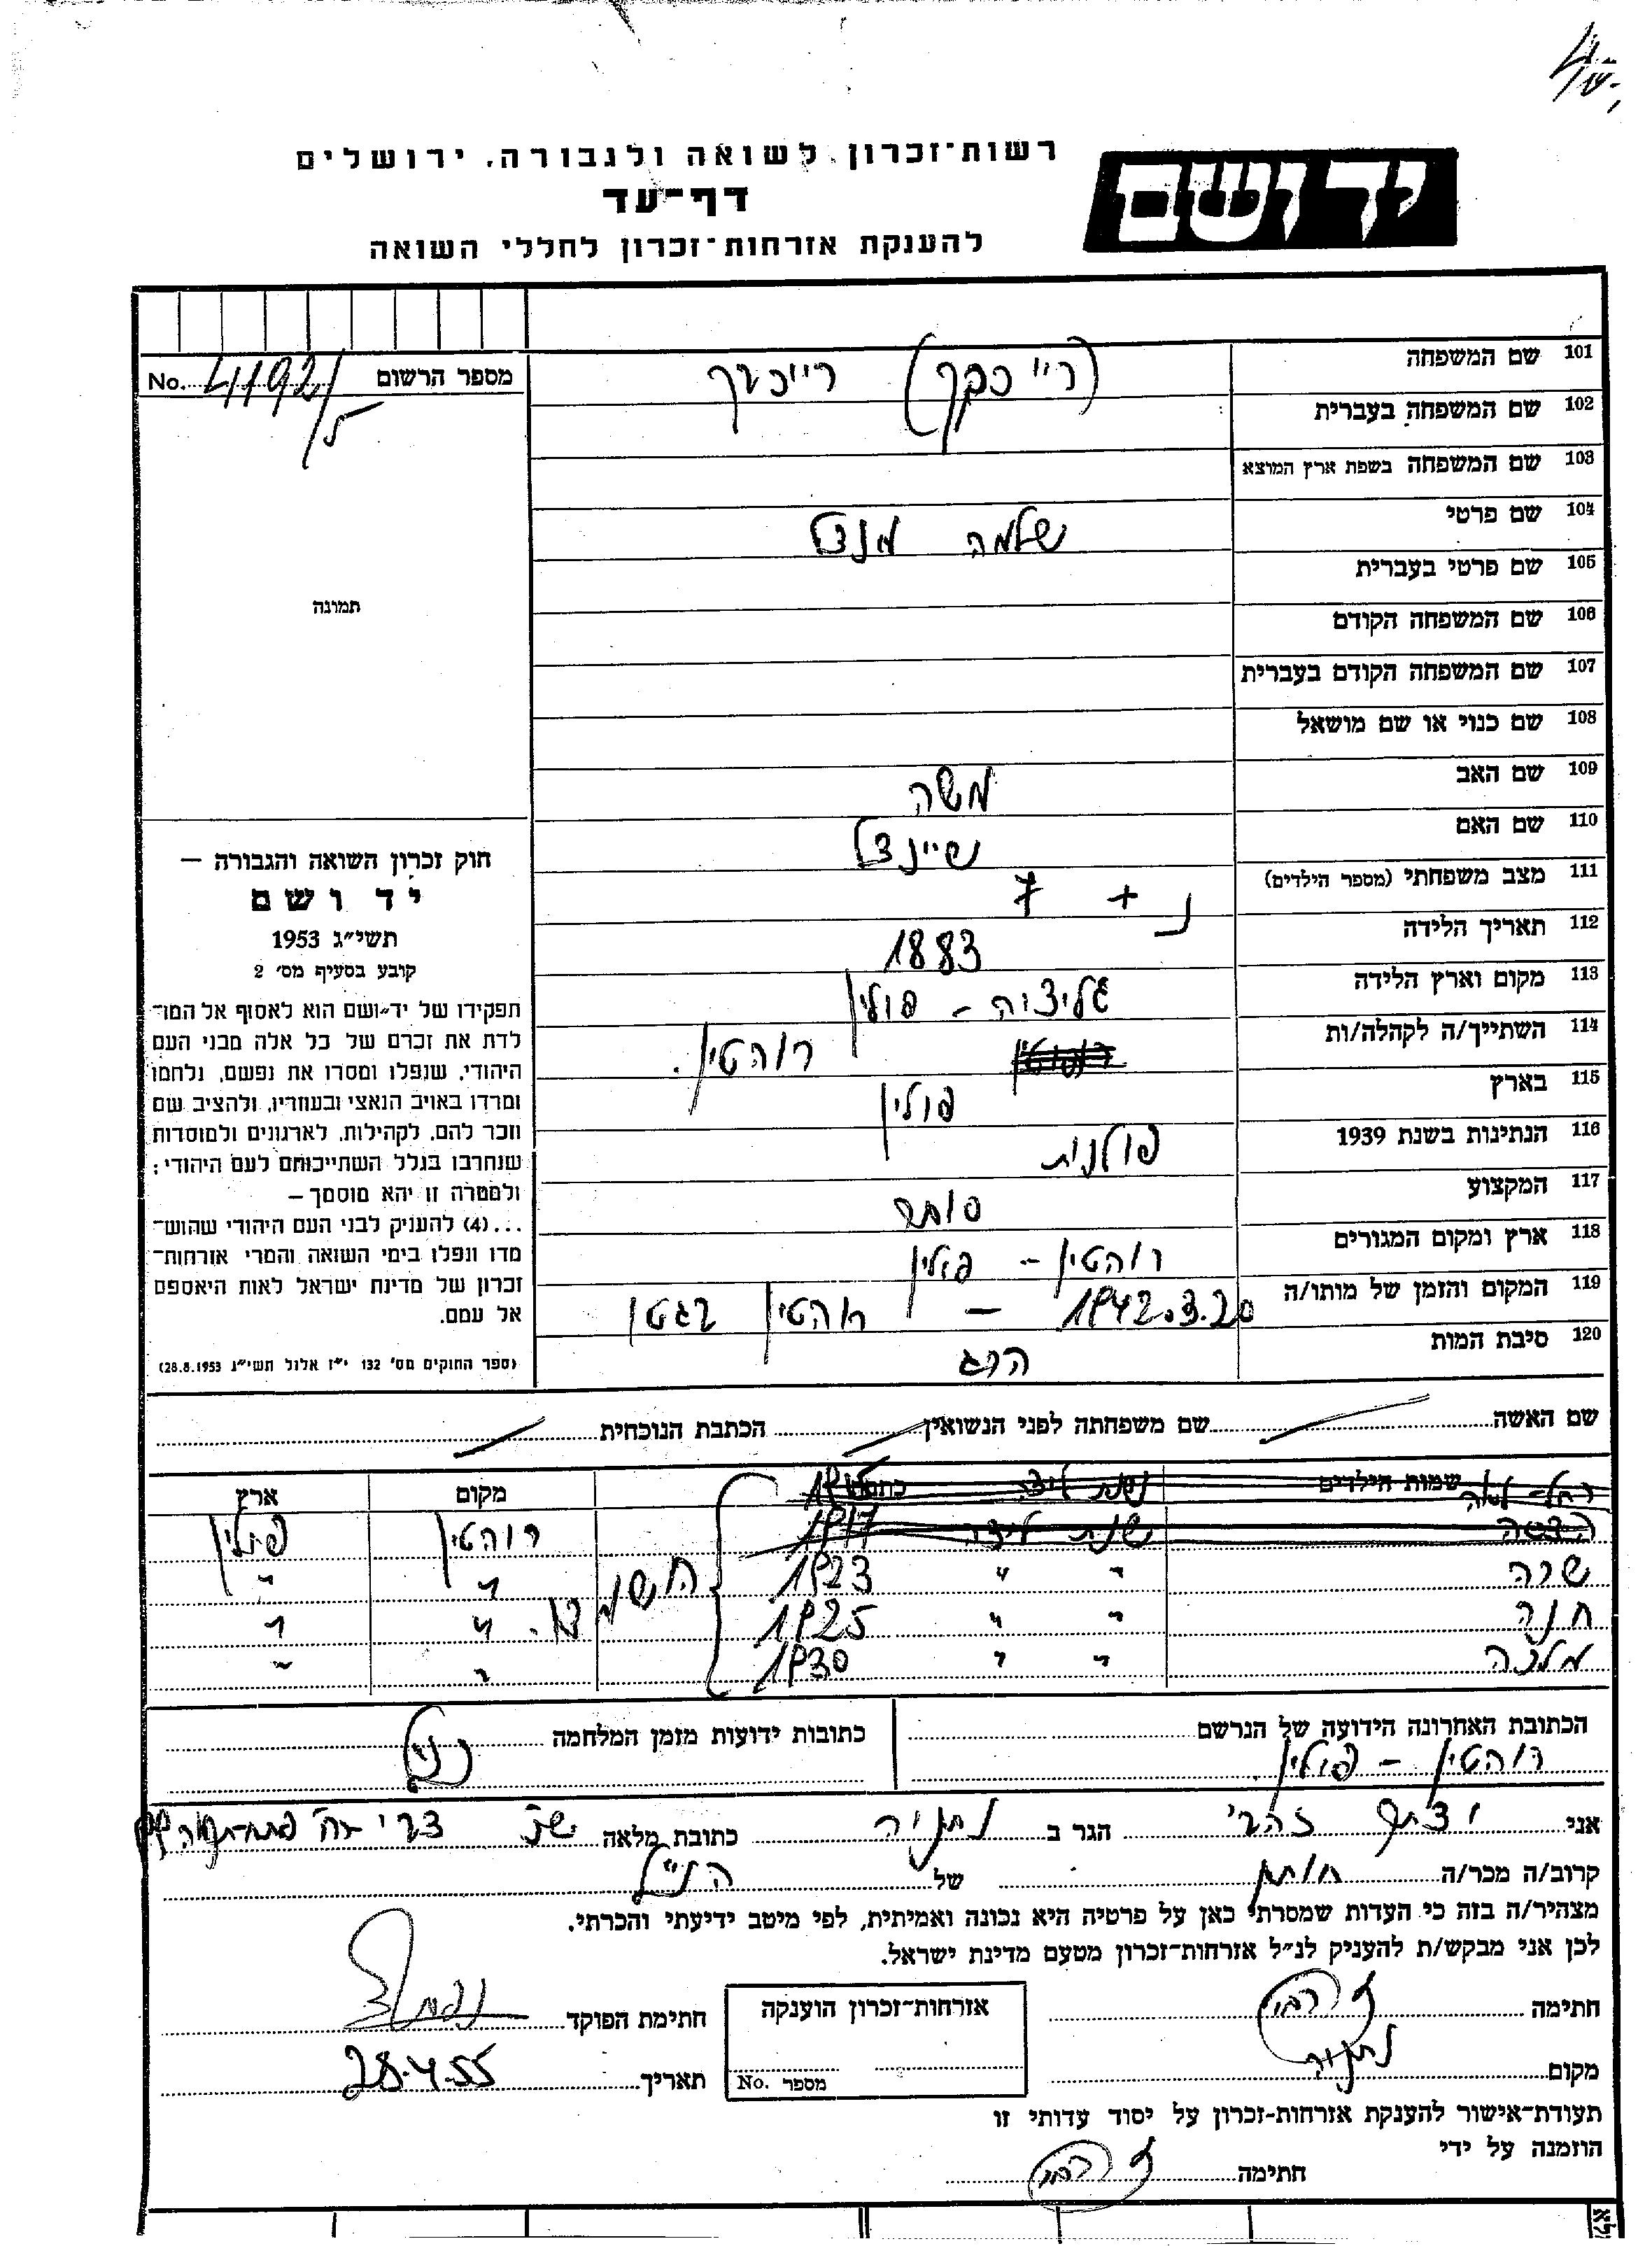 רשות־זכרון לשואה ולגבורה, ירושלים
דף־עד
להענקת אזרחות־זכרון לחללי השואה
יד ושם
101 שם המשפחה (רייכבך) רייכבך
מספר הרשום No. 41921/5
102 שם המשפחה בעברית
103 שם המשפחה בשפת ארץ המוצא
104 שם פרטי שלמה מנדל
105 שם פרטי בעברית
106 שם המשפחה הקודם
107 שם המשפחה הקודם בעברית
108 שם כנוי או שם מושאל
109 שם האב משה
110 שם האם שיינדל
111 מצב משפחתי (מספר הילדים) נ + 7
112 תאריך הלידה 1883
113 מקום וארץ הלידה גליציה – פולין
114 השתייך/ה לקהלה/ות רוהטין.
115 בארץ פולין
116 הנתינות בשנת 1939 פולנית
117 המקצוע סוחר
118 ארץ ומקום המגורים רוהטין – פולין
119 המקום והזמן של מותו/ה 1942.3.20 – רוהטין בגטו
120 סיבת המות הרג
תמונה
חוק זכרון השואה והגבורה –
יד ושם
תשי״ג 1953
קובע בסעיף מס׳ 2
תפקידו של יד־ושם הוא לאסוף אל המו־
לדת את זכרם של כל אלה מבני העם
היהודי, שנפלו ומסרו את נפשם, נלחמו
ומרדו באויב הנאצי ובעוזריו, ולהציב שם
וזכר להם, לקהילות, לארגונים ולמוסדות
שנחרבו בגלל השתייכותם לעם היהודי;
ולמטרה זו יהא מוסמך –
...(4) להעניק לבני העם היהודי שהוש־
מדו ונפלו בימי השואה והמרי אזרחות־
זכרון של מדינת ישראל לאות היאספם
אל עמם.
(ספר החוקים מס׳ 132 י״ז אלול תשי״ג 28.8.1953)
שם האשה שם משפחתה לפני הנשואין הכתבת הנוכחית
שמות הילדים מקום ארץ
שנת לידה 1917 רוהטין פולין
שרה " " 1923 " "
חנה " " 1925 " "
מלכה " " 1930 " "
הכתובת האחרונה הידועה של הנרשם כתובות ידועות מזמן המלחמה
רוהטין – פולין.
אני זהבי הגר ב נתניה כתובת מלאה
קרוב/ה מכר/ה חותן של הנ״ל
מצהיר/ה בזה כי העדות שמסרתי כאן על פרטיה היא נכונה ואמיתית, לפי מיטב ידיעתי והכרתי.
לכן אני מבקש/ת להעניק לנ״ל אזרחות־זכרון מטעם מדינת ישראל.
חתימה אזרחות־זכרון הוענקה חתימת הפוקד
מקום נתניה מספר No. תאריך 28.4.55
תעודת־אישור להענקת אזרחות־זכרון על יסוד עדותי זו
הוזמנה על ידי
חתימה